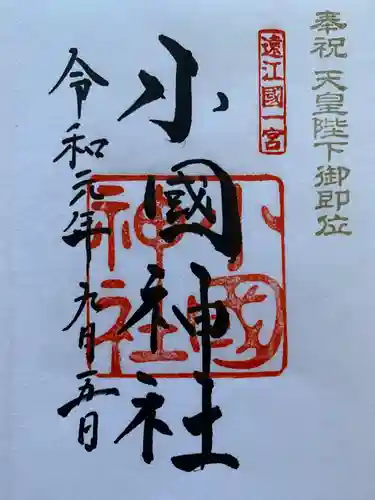 奉祝 天皇陛下御即位
遠江國一宮
小國神社
小國神社
令和元年九月五日